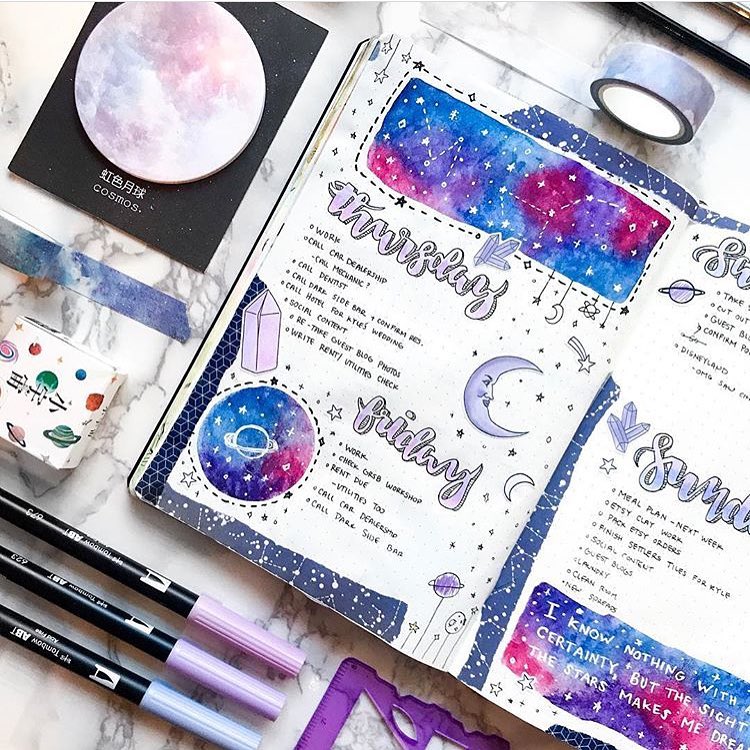 虹色月球
cosmos.
小宇宙
thursday
WORK
CALL CAR DEALERSHIP
-CALL MECHANIC?
CALL DENTIST
CALL DARK SIDE BAR + CONFIRM RES
CALL HOTEL FOR KYLES WEDDING
SOCIAL CONTENT
RE-TAKE GUEST BLOG PHOTOS
WRITE RENT/ UTILITIES CHECK
friday
WORK
CHECK GRSB WORKSHOP
RENT DUE
-UTILITIES TOO
CALL CAR DEALERSHIP
CALL DARK SIDE BAR
TAKE
CUT OU
GUEST BLO
CONFIRM PO
DISNEYLAND
-OMG SAW CH
Sund
MEAL PLAN - NEXT WEEK
ETSY CLAY WORK
PACK ETSY ORDERS
FINISH SETTLERS TILES FOR KYLE
SOCIAL CONTENT
GUEST BLOGS
LAUNDRY
CLEAN ROOM
NEW SPREADS
I KNOW NOTHING WITH
CERTAINTY, BUT THE SIGHT
THE STARS MAKES ME DRE
673 Tombow ABT
623 Tombow ABT
Tombow ABT